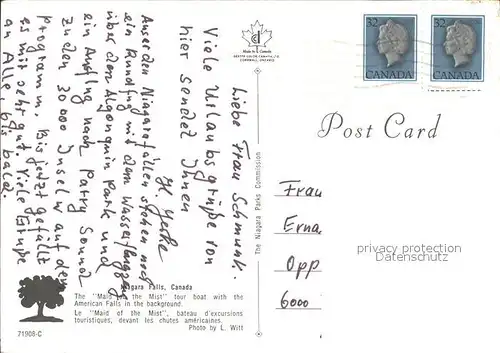 Liebe Frau Schmunk.
Viele Urlaubsgrüße von
hier sendet Ihnen
H. Jerke
Auser den Niagarafällen stehen noch
ein Rundflug mit dem Wasserflugzeug
über dem Algonquin Park und
ein Ausflug nach Parry Sound
zu den 30 000 Inseln auf dem
Programm. Bis jetzt gefällt
es mir sehr gut. Viele Grüße
an Alle, bis bald.
Made in Canada
The Niagara Parks Commission
32
CANADA
32
CANADA
Post Card
Frau
Erna
Opp
6000
privacy protection
Datenschutz
Niagara Falls, Canada
The "Maid of the Mist" tour boat with the
American Falls in the background.
Le "Maid of the Mist", bateau d'excursions
touristiques, devant les chutes américaines.
71908-C
Photo by L. Witt